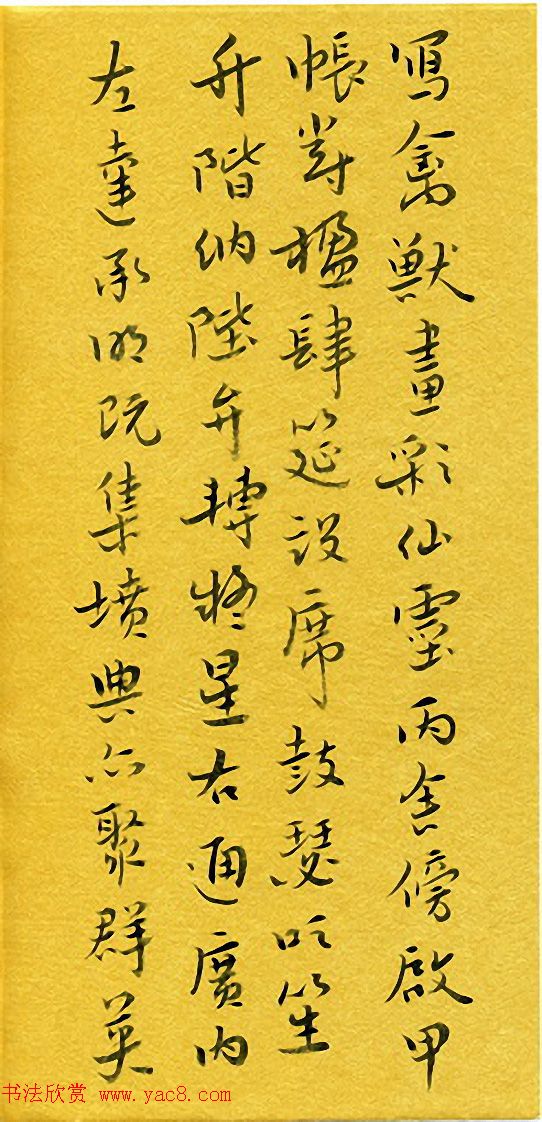 寫禽獸畫彩仙靈丙舍傍啟甲
帳對楹肆筵設席鼓瑟吹笙
升階納陛弁轉疑星右通廣內
左達承明既集墳典亦聚群英
书法欣赏 www.yac8.com